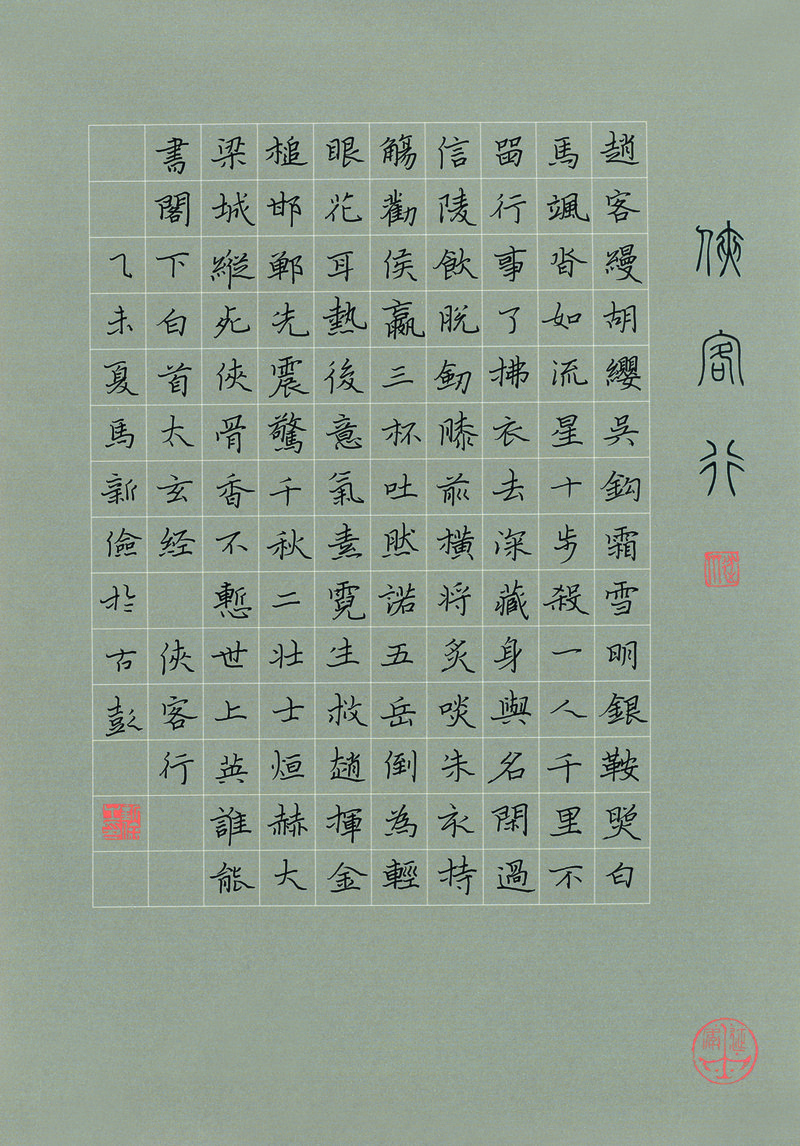 俠客行
趙客縵胡纓吳鈎霜雪明銀鞍照白
馬颯沓如流星十步殺一人千里不
留行事了拂衣去深藏身與名閑過
信陵飲脫劍膝前橫將炙啖朱亥持
觴勸侯嬴三杯吐然諾五岳倒為輕
眼花耳熱後意氣素霓生救趙揮金
槌邯鄲先震驚千秋二壯士烜赫大
梁城縱死俠骨香不慙世上英誰能
書閣下白首太玄经 俠客行
乙未夏馬新儉於古彭